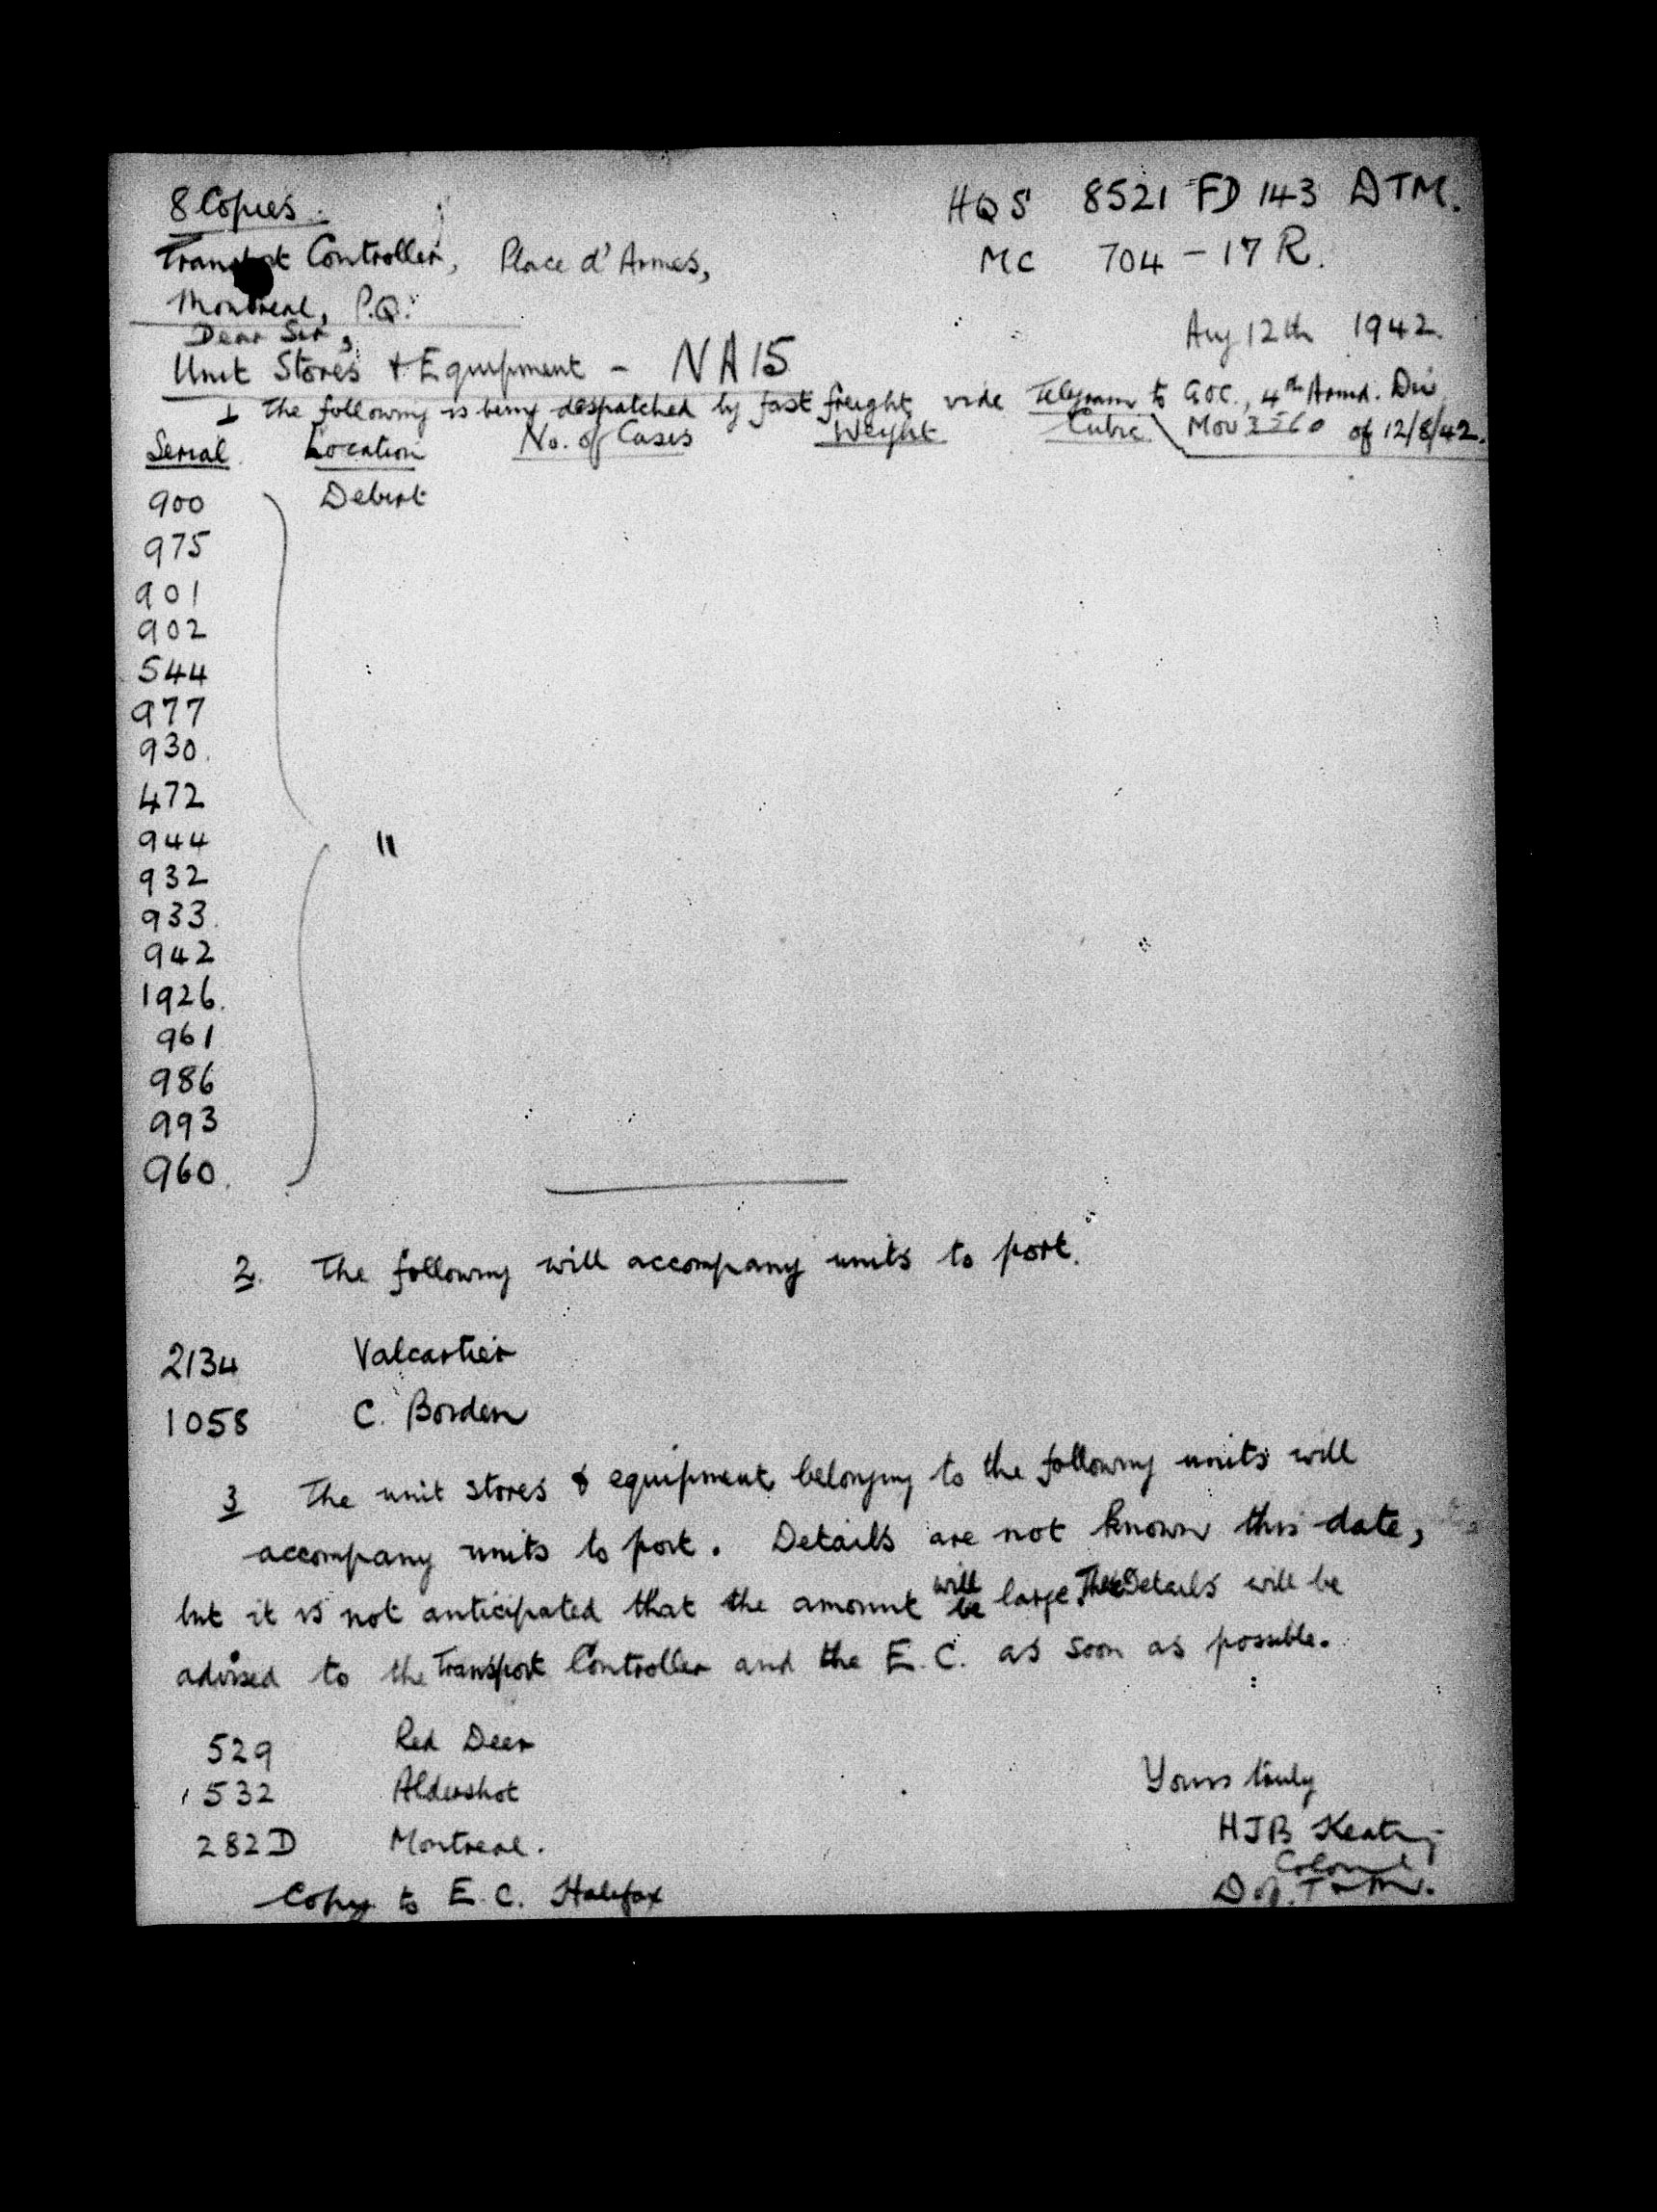 8 Copies.
HQS 8521 FD 143 DTM.
Transport Controller, Place d'Armes,
MC 704 - 17 R.
Montreal, P.Q.
Aug 12th 1942.
Dear Sir,
Unit Stores & Equipment - NA15
1 The following is being despatched by fast freight, vide Telegram to GOC., 4th Armd. Div
Mov of 12/8/42.
Serial Location No. of Cases Weight Cubic
900 Debert
975
901
902
544
977
930.
472
944 "
932
933.
942
1926.
961
986
993
960.
2. The following will accompany units to port.
2134 Valcartier
1058 C. Borden
3 The unit stores & equipment belonging to the following units will
accompany units to port. Details are not known this date,
but it is not anticipated that the amount will be large. These details will be
advised to the Transport Controller and the E.C. as soon as possible.
529 Red Deer
532 Aldershot
282D Montreal.
Yours truly
HJB Keating
Colonel
D of T & M.
Copy to E.C. Halifax